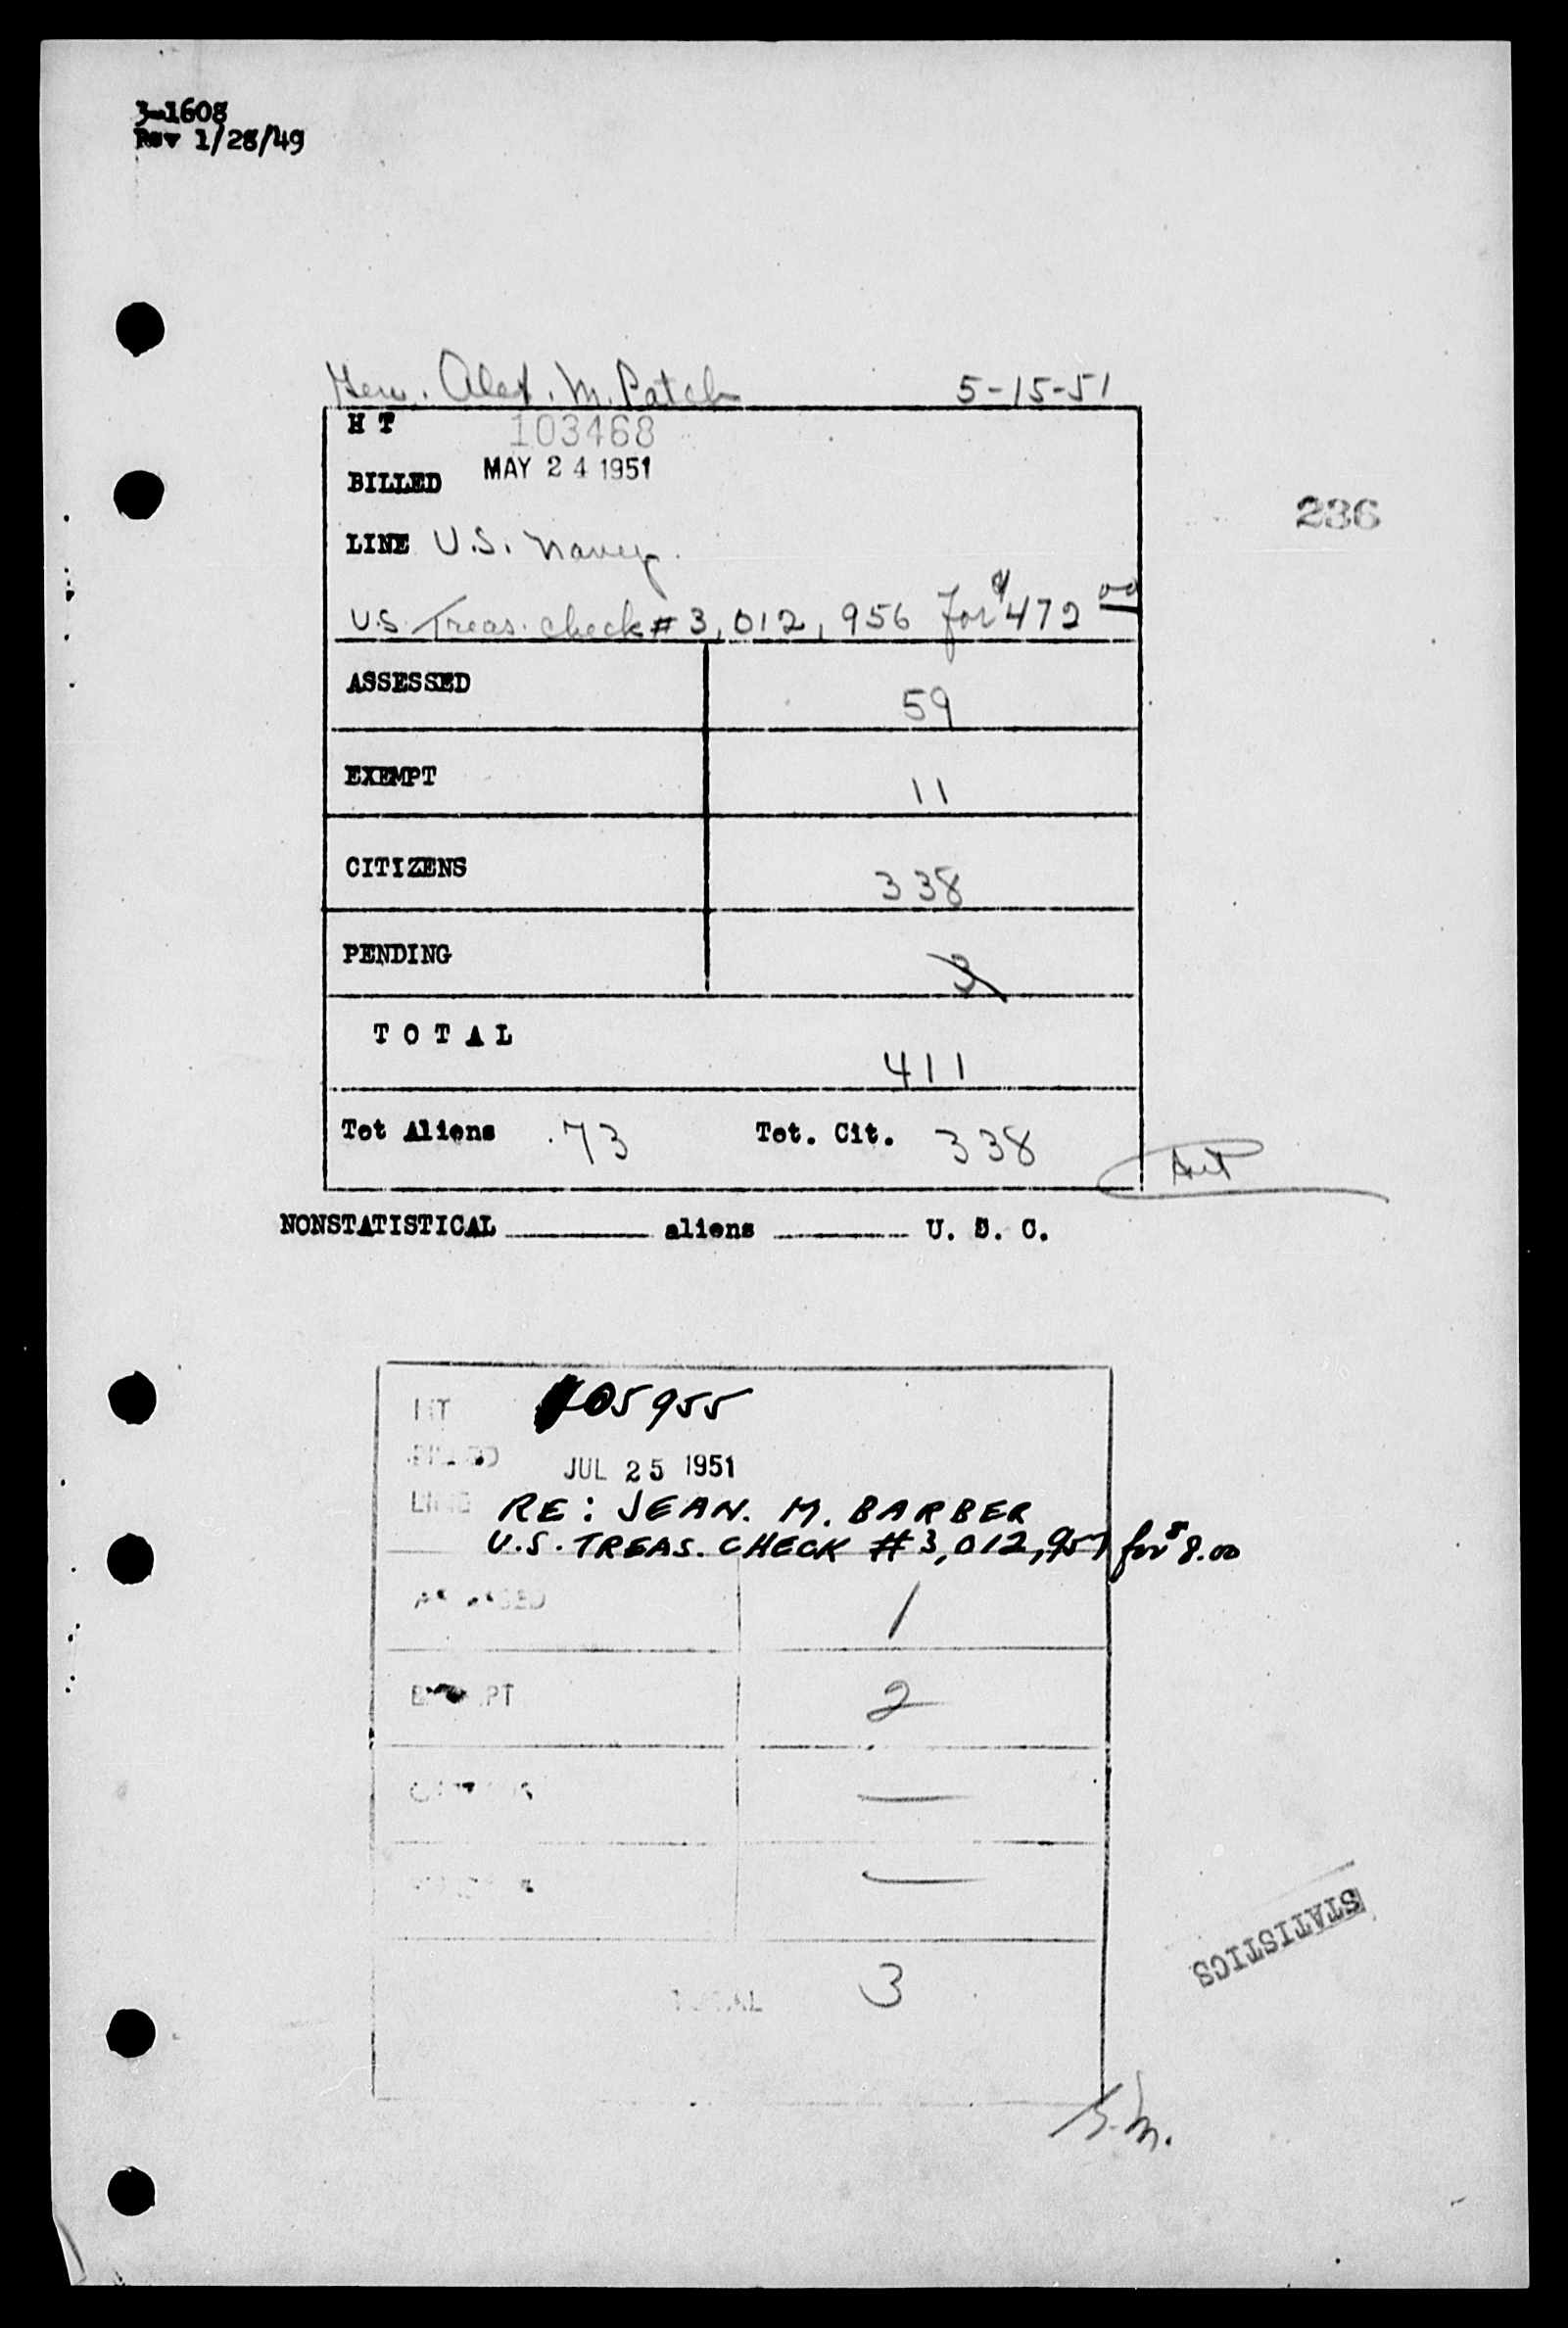 3-1608
Rev 1/28/49
Gen. Alex. M. Patch 5-15-51
H T 103468
BILLED MAY 24 1951
236
LINE U.S. Navy.
U.S. Treas. check # 3,012,956 for $472 00
ASSESSED 59
EXEMPT 11
CITIZENS 338
PENDING 3
T O T A L 411
Tot Aliens 73 Tot. Cit. 338
NONSTATISTICAL aliens U. S. C.
HT 105955
JUL 25 1951
LINE RE: JEAN. M. BARBER
U.S. TREAS. CHECK # 3,012,957 for $8.00
ASSESSED 1
EXEMPT 2
CITIZENS —
—
STATISTICS
TOTAL 3